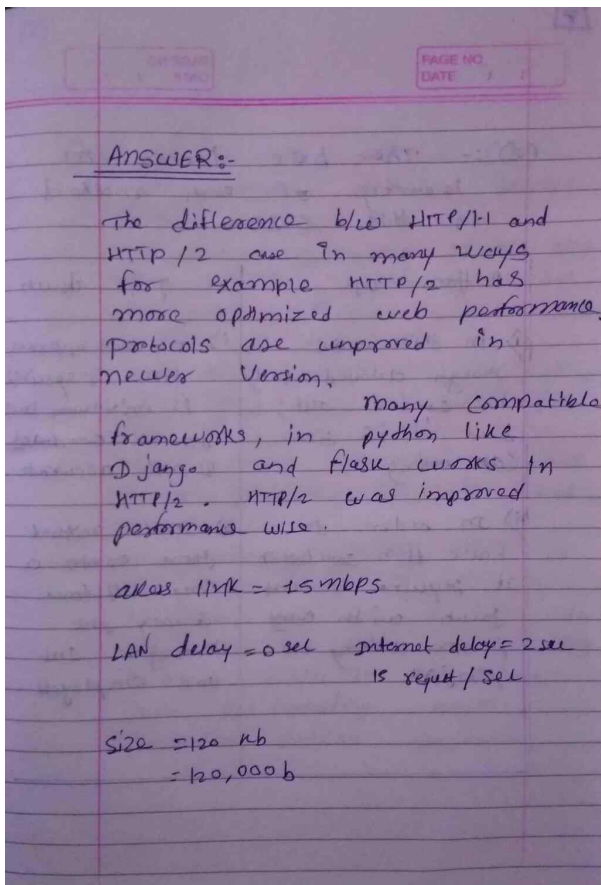 PAGE NO.
DATE / /
ANSWER:-
The difference b/w HTTP/1.1 and
HTTP/2 are in many ways
for example HTTP/2 has
more optimized web performance.
Protocols are unproved in
newer Version.
Many Compatible
frameworks, in python like
Django and flask works in
HTTP/2. HTTP/2 was improved
performance wise.
link = 15 mbps
LAN delay = 0 sec Internet delay = 2 sec
15 request / sec
Size = 120 kb
= 120,000 b